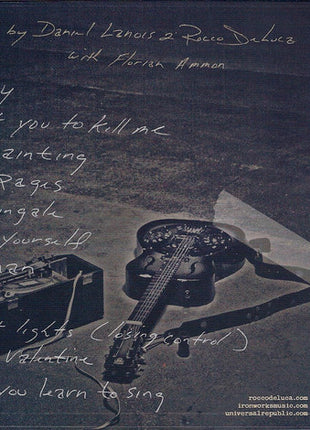 by Daniel Lanois & Rocco DeLuca
with Florian Ammon
y
t you to kill me
ainting
Rages
ngale
yourself
man
t lights (losing control)
Valentine
you learn to sing
roccodeluca.com
ironworksmusic.com
universalrepublic.com